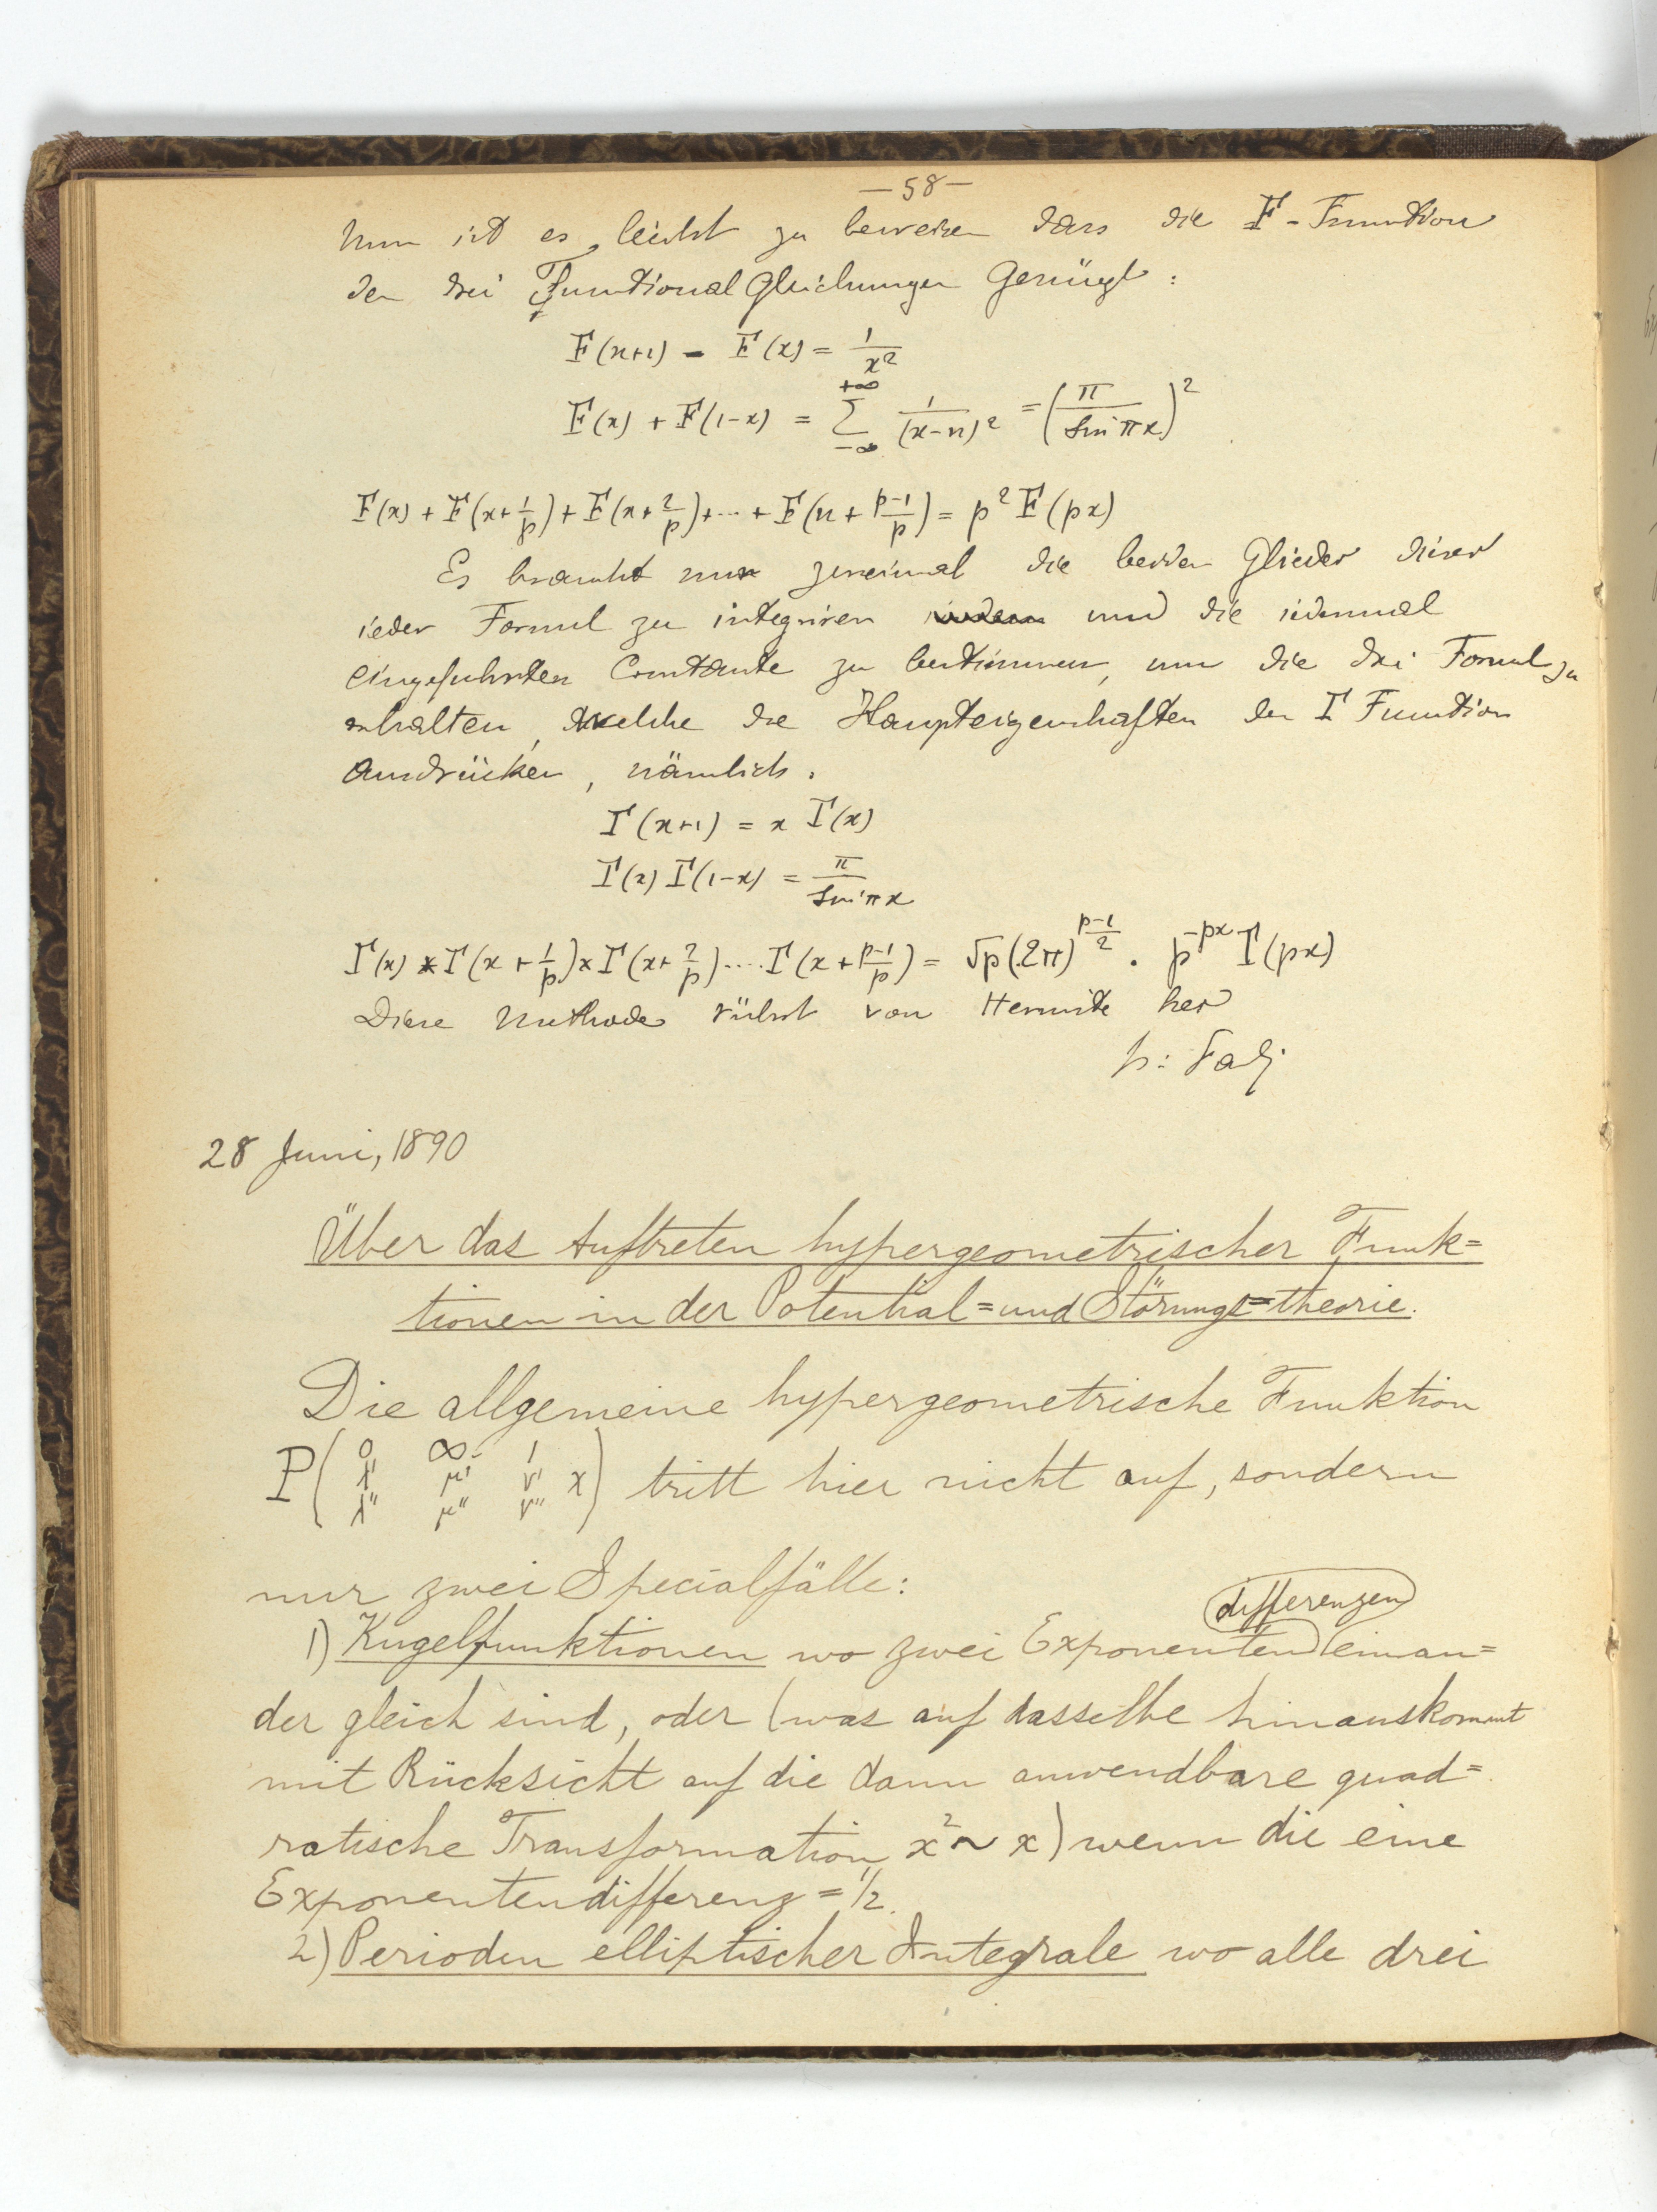 — 58 —
Nun ist es leicht zu beweisen dass die F-Function
den drei Functional Gleichungen Genügt :
F(x+1) - F(x) = 1/x²
F(x) + F(1-x) = Σ_{-∞}^{+∞} 1/(x-n)² = (π/sin πx)²
F(x) + F(x+1/p) + F(x+2/p) + ... + F(x + (p-1)/p) = p² F(px)
Es braucht nur zweimal die beiden Glieder dieser
jeder Formel zu integriren und die jedesmal
eingeführten Constante zu bestimmen, um die drei Formel zu
erhalten, welche die Haupteigenschaften der Γ Function
Ausdrücken, nämlich.
Γ(x+1) = x Γ(x)
Γ(x) Γ(1-x) = π/sin πx
Γ(x) × Γ(x + 1/p) × Γ(x + 2/p) .... Γ(x + (p-1)/p) = √p (2π)^{(p-1)/2} . p^{-px} Γ(px)
Diese Methode rührt von Hermite her
28 Juni, 1890
Über das Auftreten hypergeometrischer Funk=
tionen in der Potential=und Störungs=theorie.
Die allgemeine hypergeometrische Funktion
P( 0 ∞ 1
λ' μ' ν' x
λ'' μ'' ν'' ) tritt hier nicht auf, sondern
nur zwei Specialfälle:
differenzen
1) Kugelfunktionen wo zwei Exponenten einan=
der gleich sind, oder (was auf dasselbe hinauskommt
mit Rücksicht auf die dann anwendbare quad=
ratische Transformation x² ~ x) wenn die eine
Exponentendifferenz = 1/2.
2) Perioden elliptischer Integrale wo alle drei